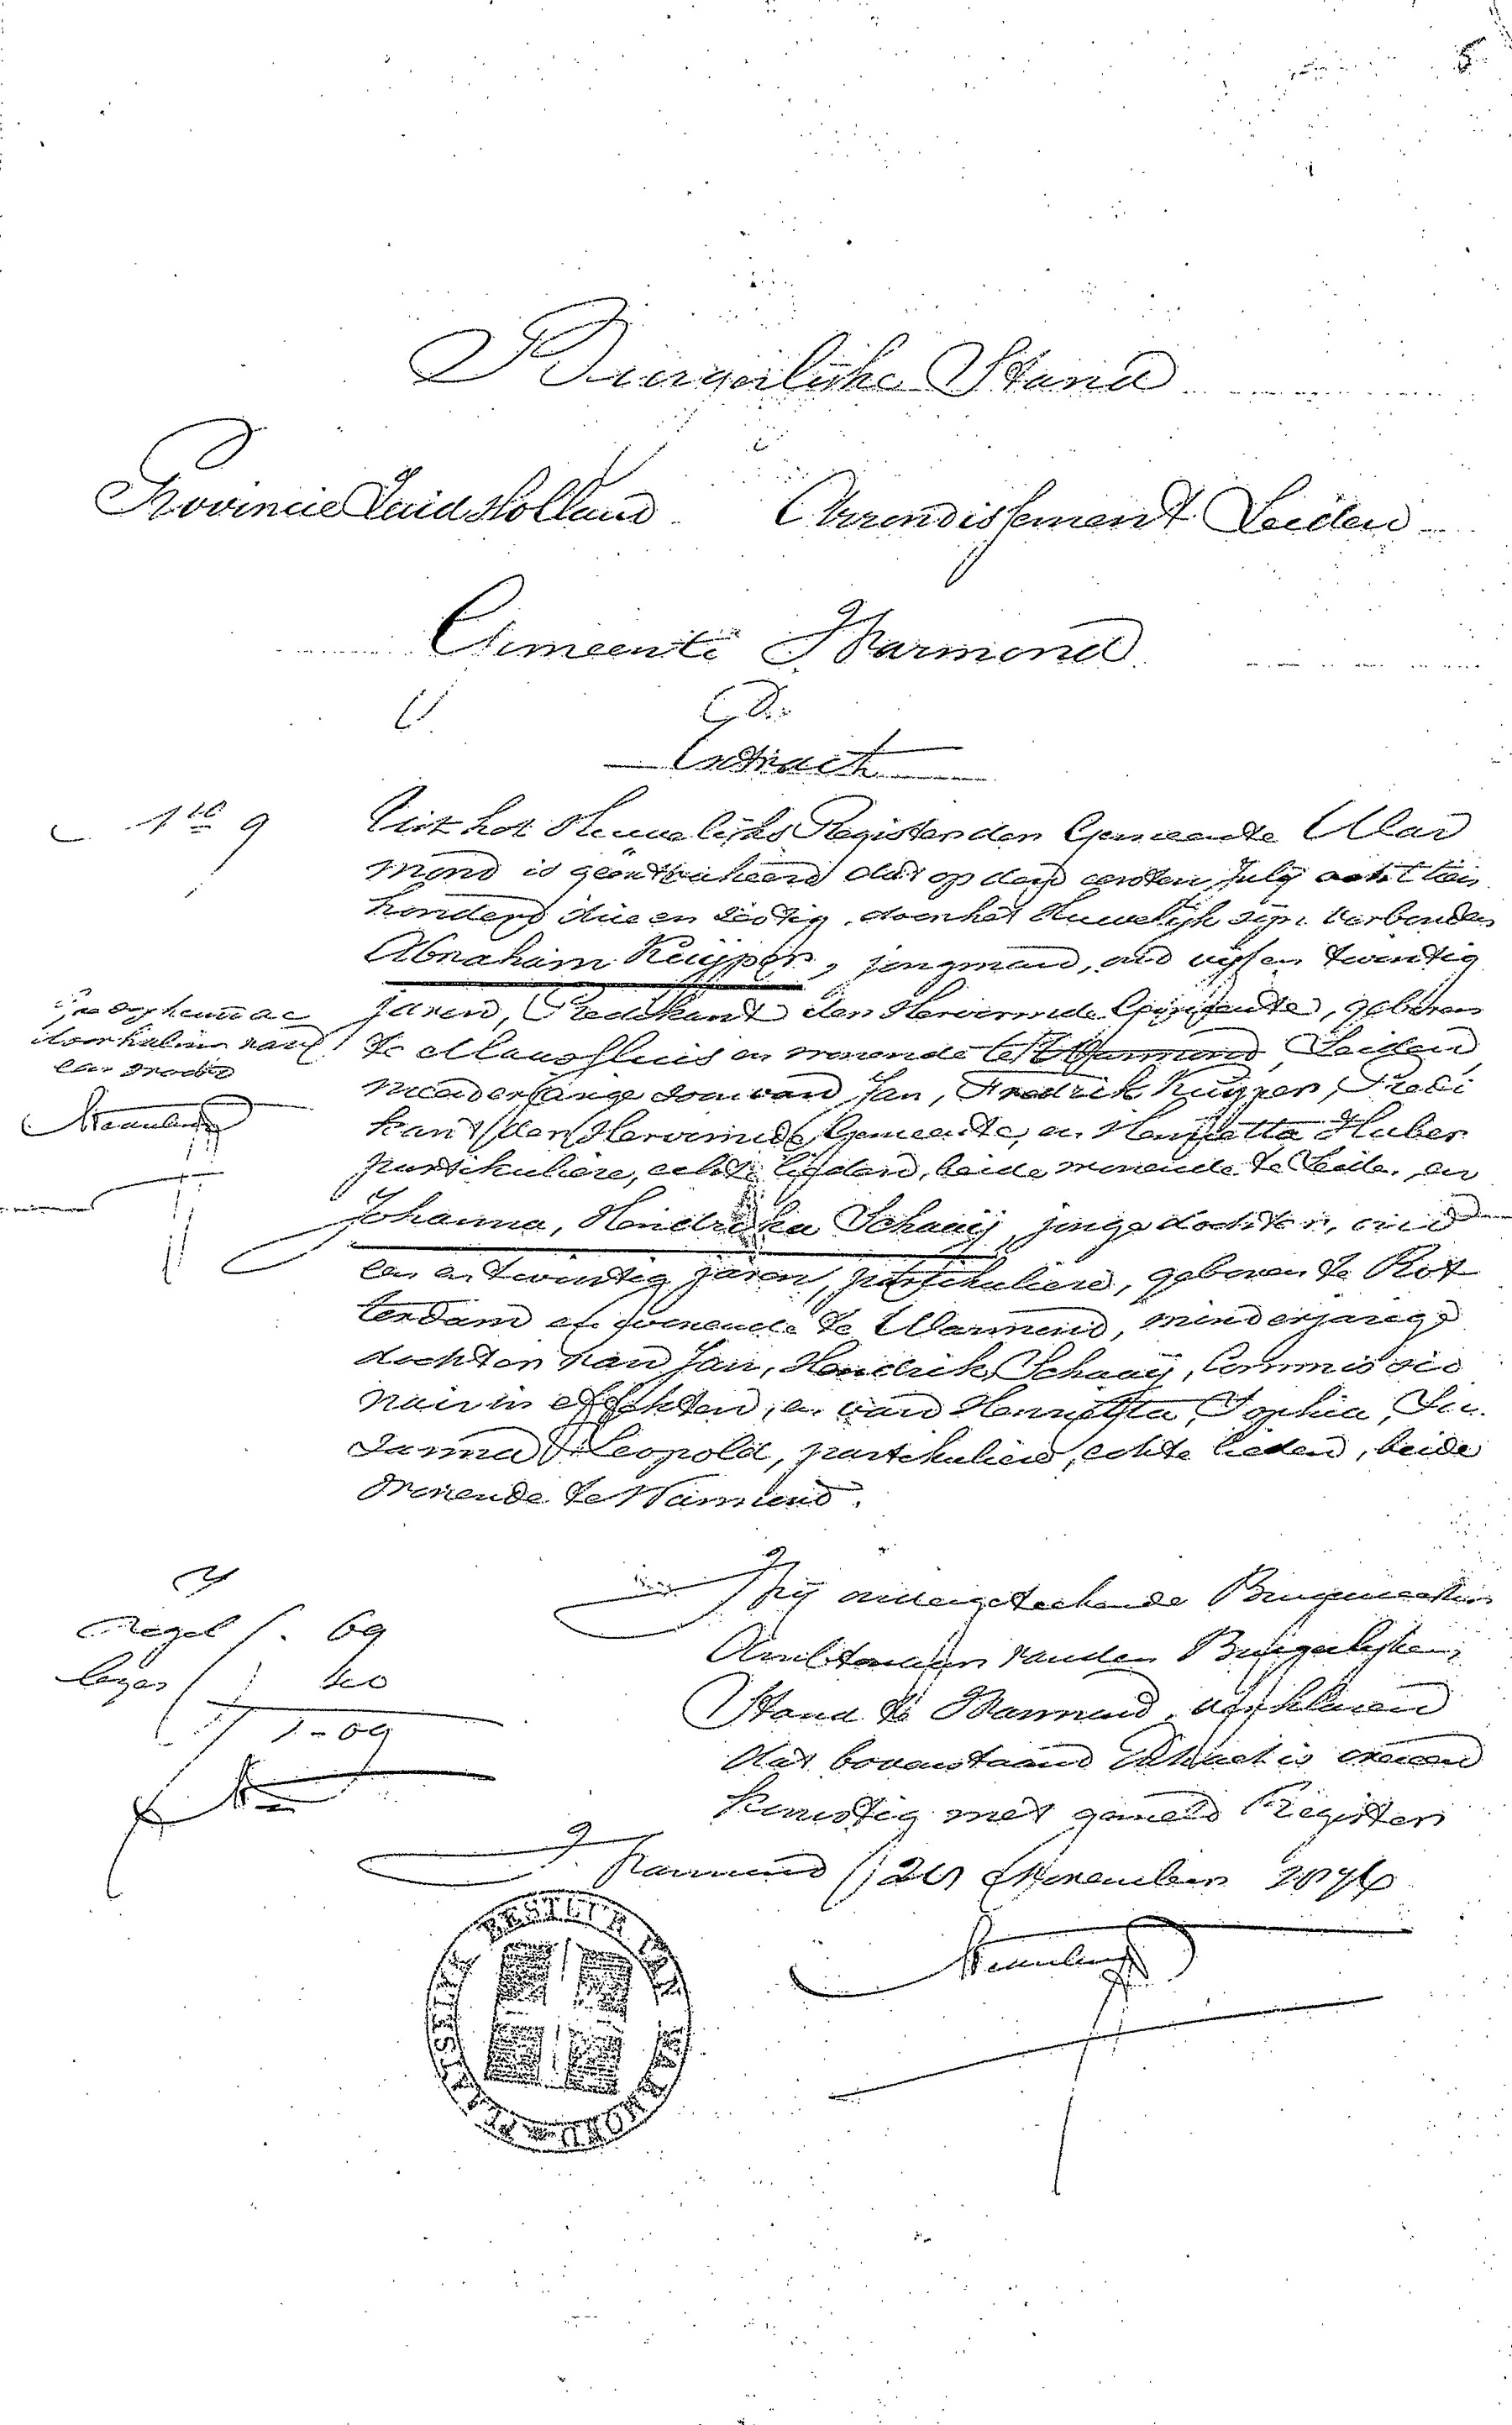 5
Burgerlijke Stand
Provincie Zuid Holland Arrondissement Leiden
Gemeente Warmond
Extract
No 9
Uit het Huwelijks Register der Gemeente War
mond is geëxtraheerd dat op den eersten July achttien
honderd drie en zestig, door het Huwelijk zijn verbonden
Abraham Kuijper, jongman, oud vijf en twintig
jaren, Predikant der Hervormde Gemeente, geboren
te Maassluis en wonende te Warmond Leiden
meerderjarige zoon van Jan, Fredrik Kuijper, Predi
kant der Hervormde Gemeente, en Henrietta Huber
partikuliere, echte lieden, beide wonende te Leiden, en
Johanna, Hendrika Schaaij, jonge dochter, oud
een en twintig jaren, partikuliere, geboren te Rot
terdam en wonende te Warmond, minderjarige
dochter van Jan, Hendrik, Schaaij, Commissio
nair in effekten, en van Henrietta, Sophia, Su
sanna Leopold, partikuliere, echte lieden, beide
wonende te Warmond.
Goedgekeurd de
doorhaling van
een woord
Wij ondergeteekende Burgemeester
Ambtenaar van den Burgerlijken
Stand te Warmond, verklaren
dat bovenstaand Extract is overeen
komstig met gemeld Register
Warmond, November
Zegel 69
leges 40
1-09
PLAATSELIJK BESTUUR VAN WARMOND